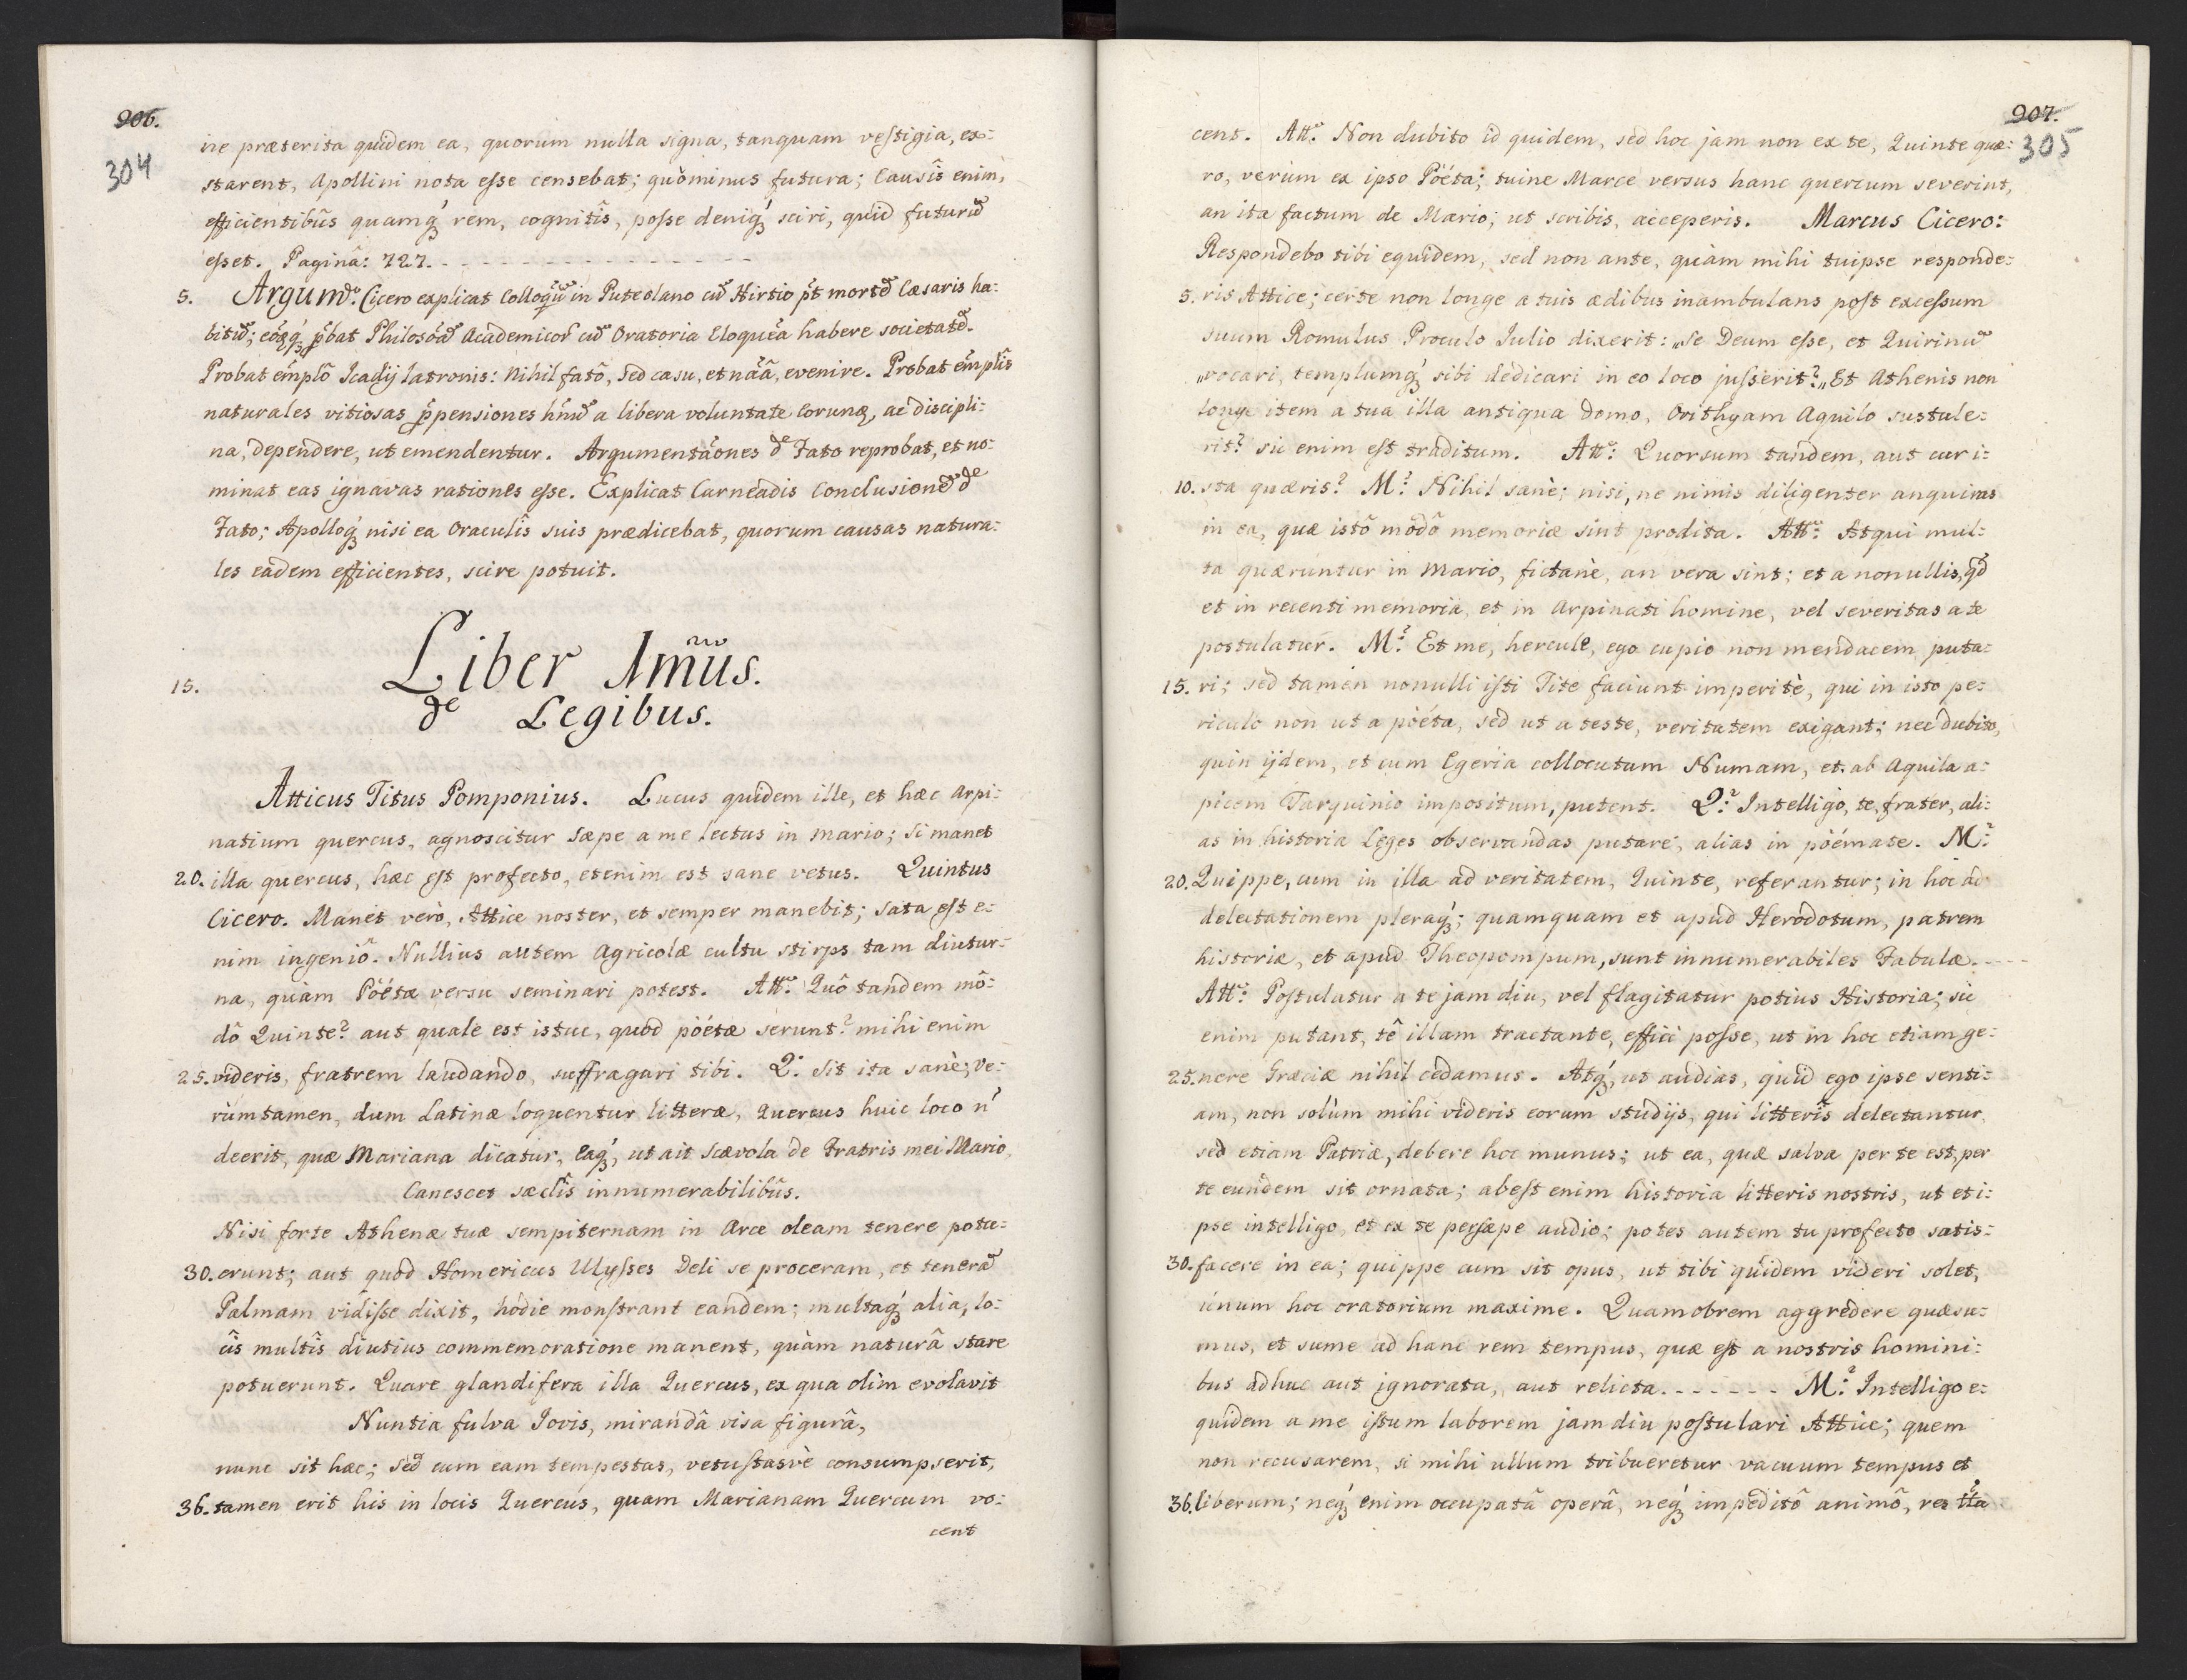 906.
304
ne præterita quidem ea, quorum nulla signa, tanquam vestigia, ex=
starent, Apollini nota esse censebat; quòminus futura; Causîs enim,
efficientibûs quamq́ꝫ rem, cognitîs, posse deniq́ꝫ sciri, quid futurũ
esset. Paginâ: 727. - - - - - - - - - - - - - - -
5. Argumᵈᵒ: Cicero explicat Colloqũ in Puteolano cũ Hirtio p̃t mortẽ Cæsaris ha=
bitũ; eóq́ꝫ p̃bat Philosóã Academicoř cũ Oratoria Eloquẽa habere societatẽ.
Probat em̃plô Icadij latronis: Nihil fatô, sed casu, et nãâ, evenire. Probat em̃plîs
naturales vitiosas p̃pensiones hñũ a libera voluntate Eorunq, ac discipli=
na, dependere, ut emendentur. Argumentãones de Fato reprobat, et no=
minat eas ignavas rationes esse. Explicat Carneadis Conclusionẽ de
Fato; Apolloq́ꝫ nisi ea Oraculîs suis prædicebat, quorum causas natura=
les eadem efficientes, scire potuit.
15. Liber Imũs.
de Legibus.
Atticus Titus Pomponius. Lucus quidem ille, et hæc Arpi=
natium quercus, agnoscitur sæpe a me lectus in Mario; si manet
20. illa quercus, hæc est profecto, etenim est sane vetus. Quintus
Cicero. Manet verò, Attice noster, et semper manebit; sata est e=
nim ingeniô. Nullius autem Agricolæ cultu stirps tam diutur=
na, quàm Pöétæ versu seminari potest. Attᵘˢ: Quô tandem mô=
dô Quinte? aut quale est istuc, quod pöétæ serunt? mihi enim
25. videris, fratrem laudando, suffragari tibi. Q: Sit ita sanè; ve=
rùmtamen, dum Latinæ loquentur litteræ, Quercus huic loco ń
deerit, quæ Mariana dicatur, Eaq́ꝫ, ut ait Scævola de Fratris mei Mario,
Canescet sæclîs innumerabilibûs.
Nisi forte Athenæ tuæ sempiternam in Arce oleam tenere potu=
30. erunt; aut quod Homericus Ulysses Deli se proceram, et tenerã
Palmam vidisse dixit, hodie monstrant eandem; multaq́ꝫ alia, lo=
cîs multîs diutius commemoratione manent, quàm naturâ stare
potuerunt. Quare glandifera illa Quercus, ex qua olim evolavit
Nuntia fulva Jovis, mirandâ visa figurâ,
nunc sit hæc; sed cum eam tempestas, vetustasvè consumpserit,
36. tamen erit his in locis Quercus, quam Marianam Quercum vo=
cent
907.
305
cent. Attᵘˢ: Non dubito id quidem, sed hoc jam non ex te, Quinte quæ=
ro, verùm ex ipso Pöéta; tuine Marce versus hanc quercum severint,
an ita factum de Mario; ut scribis, acceperis. Marcus Cicero:
Respondebo tibi equidem, sed non ante, quàm mihi tuipse responde=
5. ris Attice; certe non longe a tuis ædibus inambulans post excessum
suum Romulus Proculo Julio dixerit: „Se Deum esse, et Quirinũ
„vocari, templumq́ꝫ sibi dedicari in eo loco jusserit?„ Et Athenis non
longe item a tua illa antiqua domo, Orithyam Aquilo sustule=
rit? sic enim est traditum. Attᵘˢ: Quorsum tandem, aut cur i=
10. sta quæris? M: Nihil sanè; nisi, ne nimis diligenter anquiras
in ea, quæ istô môdô memoriæ sint prodita. Attᵘˢ: Atqui mul=
ta quæruntur in Mario, fictanè, an vera sint; et a nonullis, q̃d
et in recenti memoria, et in Arpinati homine, vel severitas a te
postulatur. M: Et me, hercule, ego cupio non mendacem puta=
15. ri; sed tamen nonulli isti Tite faciunt imperitè, qui in isto pe=
riculo non ut a pöéta, sed ut a teste, veritatem exigant; nec dubito,
quin ijdem, et cum Egeria collocutum Numam, et ab Aquila a=
picem Tarquinio impositum, putent. Q: Intelligo, te, frater, ali=
as in historia Leges observandas putare, alias in pöémate. M:
20. Quippe, cum in illa ad veritatem, Quinte, referantur; in hoc ad
delectationem pleraq́ꝫ; quamquam et apud Herodotum, patrem
historiæ, et apud Theopompum, sunt innumerabiles Fabulæ. - - - -
Attᵘˢ: Postulatur a te jam diu, vel flagitatur potius Historia; sic
enim putant, tê illam tractante, effici posse, ut in hoc etiam ge=
25. nere Græciæ nihil cedamus. Atq́ꝫ, ut audias, quid ego ipse senti=
am, non solùm mihi videris eorum studijs, qui litterîs delectantur,
sed etiam Patriæ, debere hoc munus; ut ea, quæ salva per te est, per
te eundem sit ornata; abest enim historia litteris nostris, ut et i=
pse intelligo, et ex te persæpe audio; potes autem tu profecto satis=
30. facere in ea; quippe cum sit opus, ut tibi quidem videri solet,
únum hoc oratorium maxime. Quamobrem aggredere quæsu=
mus, et sume ad hanc rem tempus, quæ est a nostris homini=
bus adhuc aut ignorata, aut relicta. - - - - - - M: Intelligo e=
quidem a me istum laborem jam diu postulari Attice; quem
non recusarem, si mihi ullum tribueretur vacuum tempus et
36. liberum; neq́ꝫ enim occupatâ operâ, neq́ꝫ impeditô animô, res tta